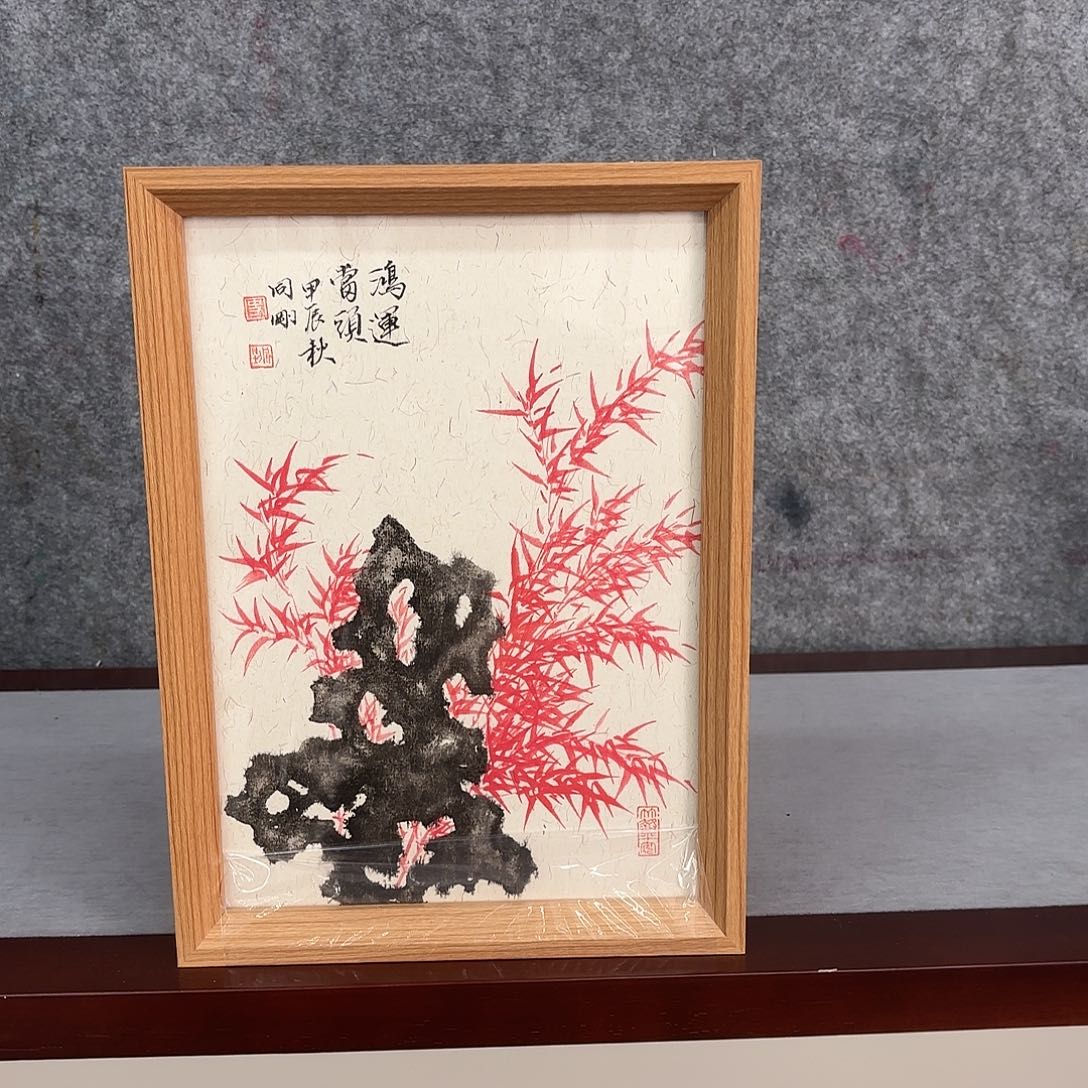 鴻運
當頭
甲辰秋
同剛